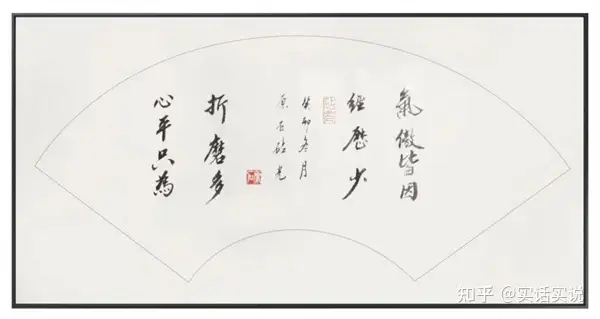 氣傲皆因
經歷少
心平只為
折磨多
癸卯冬月
知乎 @实话实说